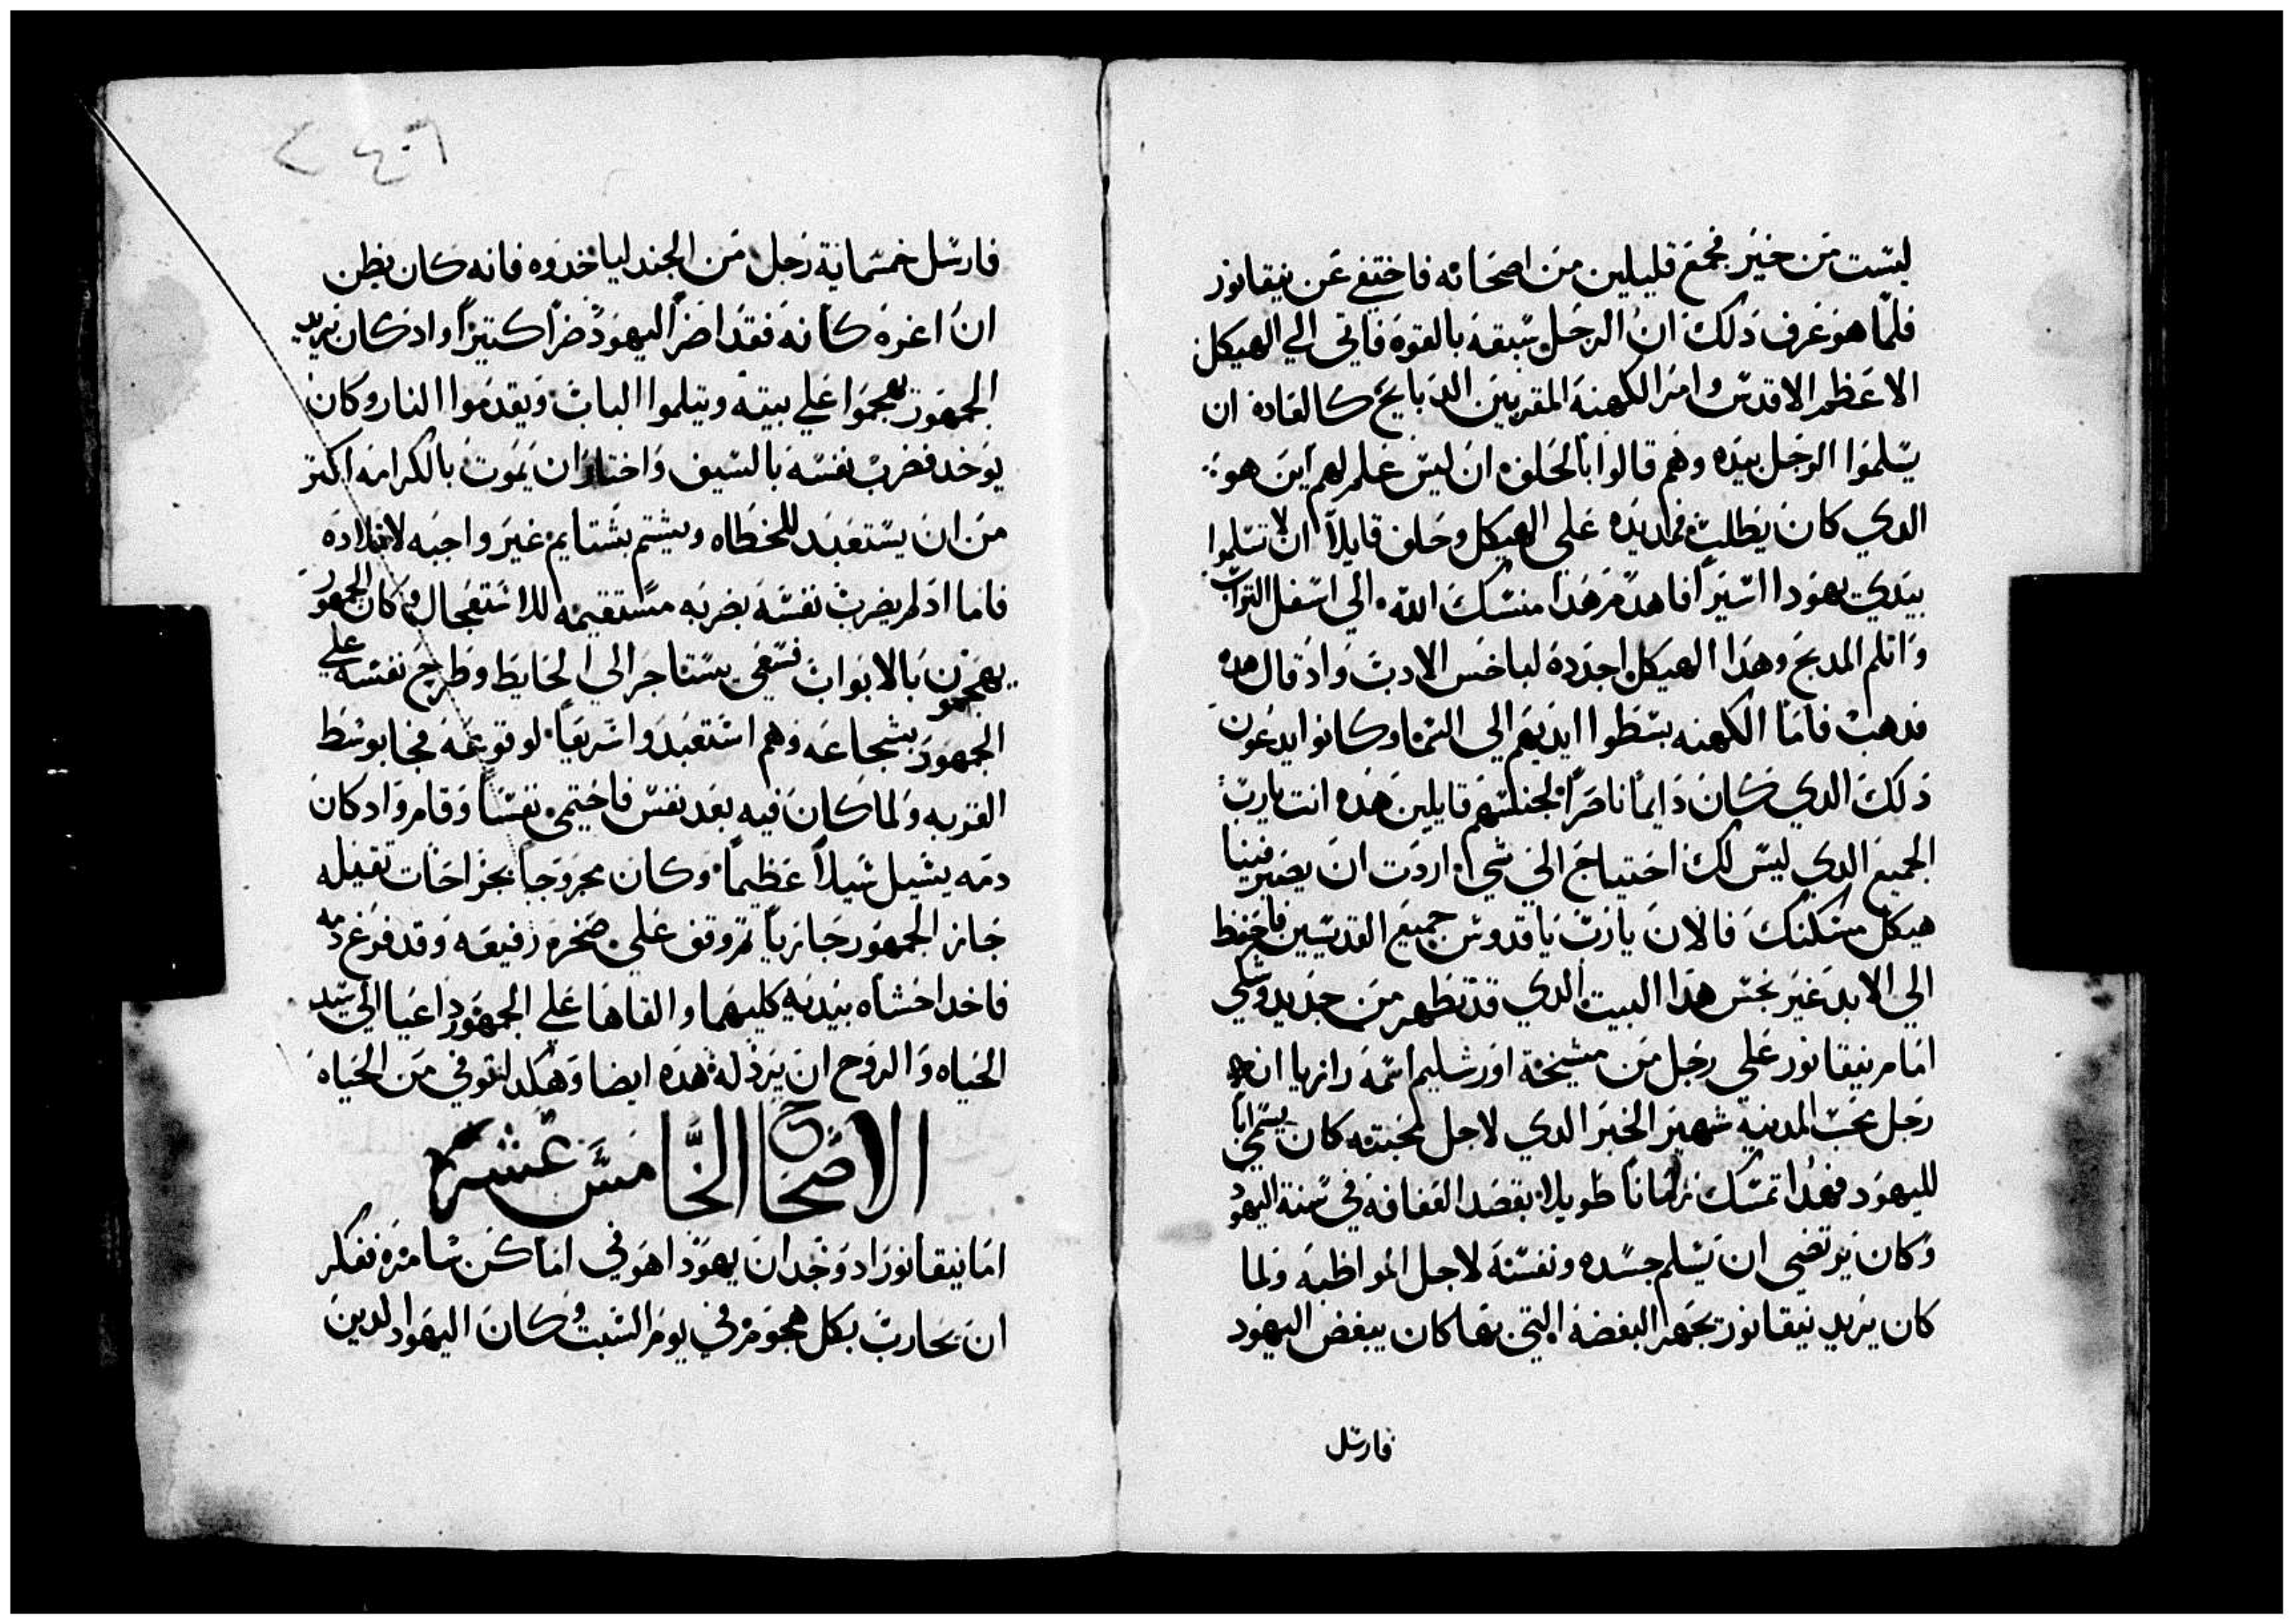 ليست من خير فجمع قليلين من اصحابه فاختفي عن نيقانور
فلما هو عرف ذلك ان الرجل سبقه بالقوه فاتي الي الهيكل
الاعظم الاقدس وامر الكهنة المقربين الدبايح كالعاده ان
يسلموا الرجل بيده وهم قالوا بالحلف ان ليس علم لهم اين هو
الدي كان يطلب فمد يده علي الهيكل وحلف قايلاً ان لا تسلموا
بيدي يهودا اسيراً فاهدم هدا منسك الله الي اسفل التراب
واثلم المدبح وهدا الهيكل اجدده لباخس الادب واد قال هده
فدهب فاما الكهنه بسطوا ايديهم الي السما وكانوا يدعون
دلك الدي كان دايماً ناصراً لجنسهم قايلين هده انت يارب
الجميع الدي ليس لك احتياج الي شي اردت ان يصير فينا
هيكل مسكنك فالان يارب ياقدوس جميع القديسين فاحفظ
الي الابد غير نجس هدا البيت الدي قد تطهر من جديد وشكي
امام نيقانور علي رجل من مشيخة اورشليم اسمه رازيا انه
رجل محب المدينه شهير الخبر الدي لاجل محبته كان يسمي اباً
لليهود فهدا تمسك زماناً طويلا بقصد العفافة في سنة اليهود
وكان يرتضي ان يسلم جسده ونفسه لاجل المواظبه ولما
كان يريد نيقانور يجهر البغضه التي بها كان يبغض اليهود
فارسل
٢٤٠٦
فارسل خمسماية رجل من الجند لياخدوه فانه كان يظن
ان اغره كانه فقد اضر اليهود ضراً كتيراً واد كان يريد
الجمهور يهجموا علي بيته ويتلموا الباب ويقدموا النار وكان
يوخد فضرب نفسه بالسيف واختار ان يموت بالكرامه اكتر
من ان يستعبد للخطاه ويشتم بشتايم غير واجبه لاولاده
فاما اد لم يضرب نفسه بضربه مستقيمه للاستعجال وكان الجمهور
يهجمون بالابواب فسعي يستاجر الي الحايط وطرح نفسه علي
الجمهور بشجاعه وهم استعبدوا سريعاً لوقوعه فجا بوسط
القربه ولما كان فيه بعد نفس فاحتمي نفساً وقام واد كان
دمه يسيل سيلاً عظيماً وكان مجروحاً بجراحات تقيله
جاز الجمهور جازياً تم وقف علي صخره رفيعه وقد فرغ دمه
فاخد احشاه بيديه كليهما والقاها علي الجمهور داعيا الي سيد
الحياه والروح ان يرد له هده ايضا وهكدا توفي من الحياه
الاصحاح الخامس عشر
اما نيقانور اد وجد ان يهودا هو في اماكن سامره تفكر
ان يحارب بكل هجوم في يوم السبت وكان اليهود الدين